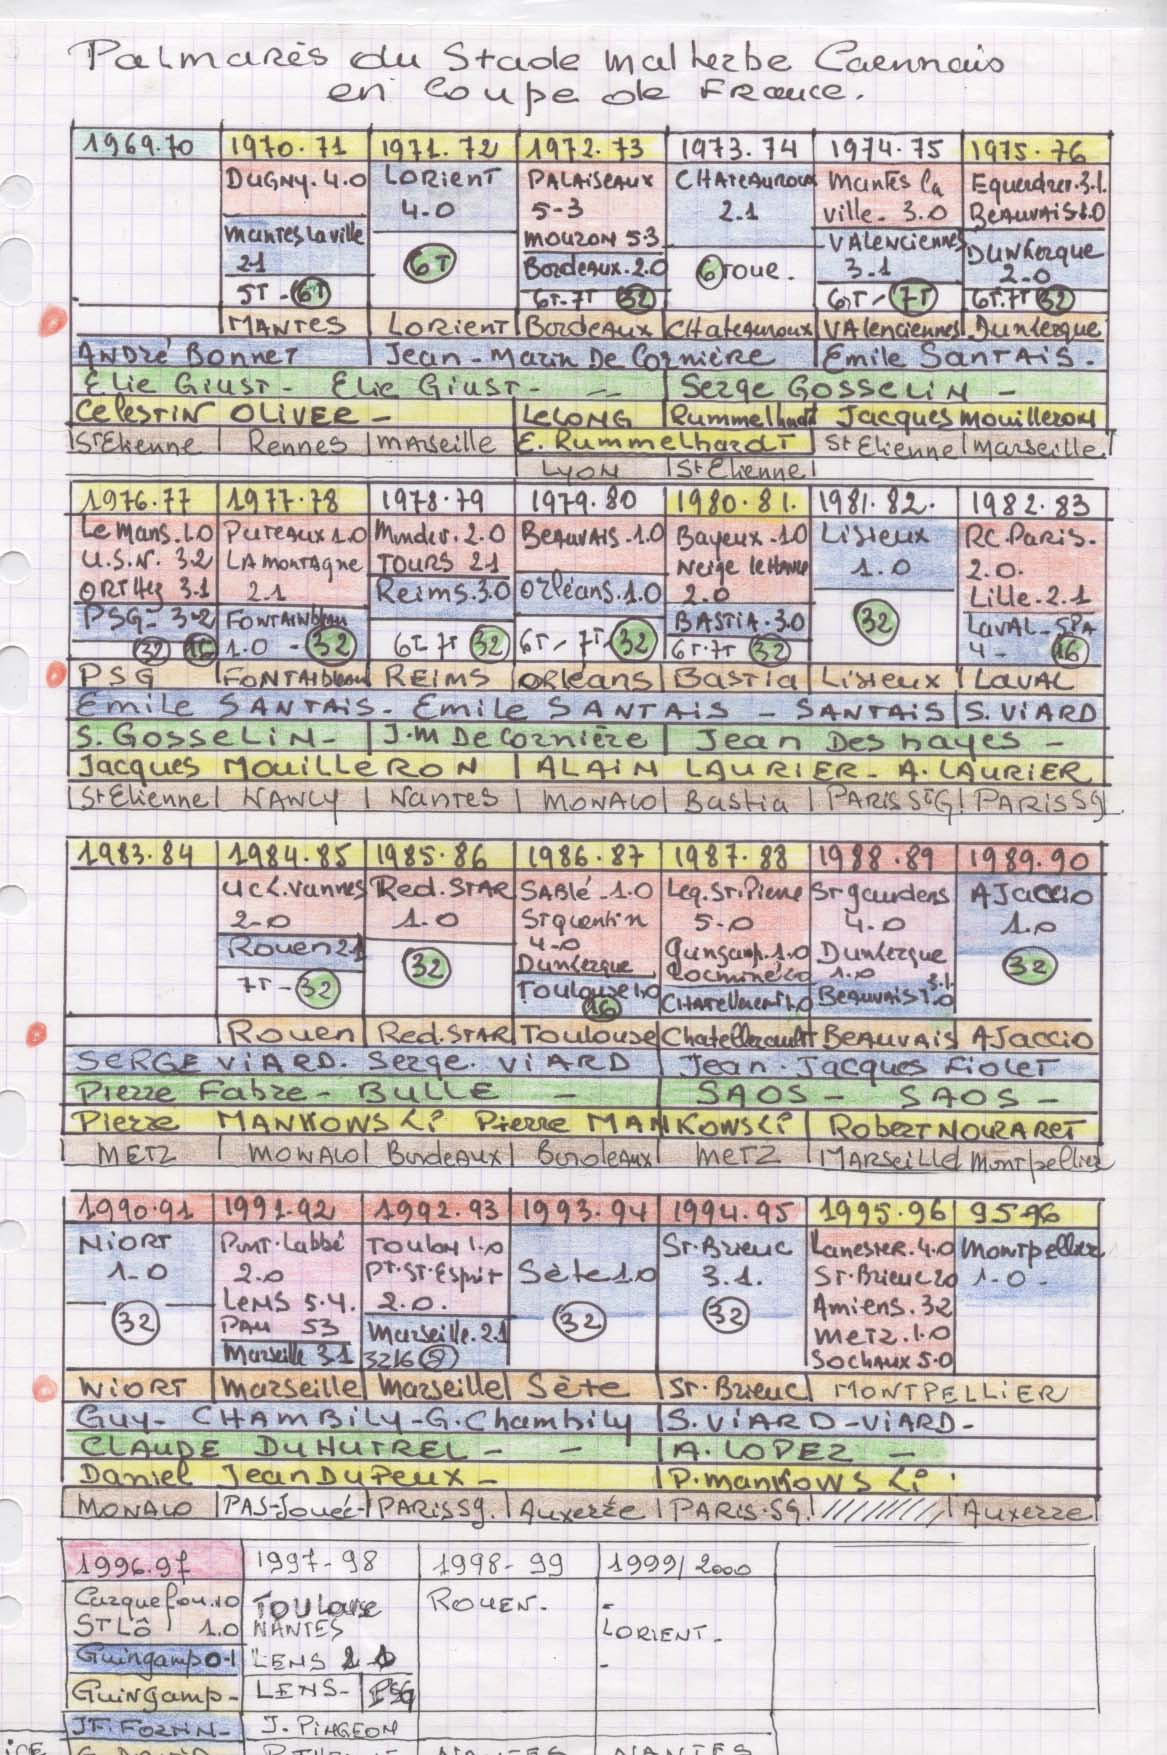 Palmarès du Stade malherbe Caennais
en Coupe de France.
1969.70 1970.71 1971.72 1972.73 1973.74 1974.75 1975.76
DUGNY.4.0 LORIENT PALAISEAUX CHATEAUROUX Mantes la Equerdrev.3.1.
4-0 5-3 2.1 ville. 3.0 BEAUVAIS 1.0
mantes la ville MOUZON 5.3 VALENCIENNES DUNKERQUE
21 6T Bordeaux.2.0 6 Toue. 3.1 2-0
5T-6T 6T.7T 32 6T-7T 6T.7T 32
MANTES LORIENT Bordeaux CHateauroux VAlenciennes Dunkerque
ANDRé BONNET Jean-Marin De Cornière Emile SANTAIS.
ELie GIUST- ELie GIUST- Serge GOSSELIN-
Celestin OLIVER- LeLONG Rummelhardt Jacques Mouilleron
St Etienne Rennes Marseille E. Rummelhardt St Etienne Marseille
LYON St Etienne
1976.77 1977-78 1978.79 1979.80 1980.81. 1981.82. 1982.83
Le Mans.1.0 PUTEAUX 1.0 2.0 BeAUVAIS.1.0 Bayeux.1.0 LISIEUX RC.PARIS.
U.S.N. 3.2 LA MONTAGNE TOURS 21 Neige le Havre 1.0 2.0.
ORTHez 3.1 2.1 Reims.3.0 Orléans.1.0 2.0 Lille.2.1
PSG- 3-2 FONTAINbleau BASTIA.3.0 32 LAVAL-
32 16 1.0 - 32 6T 7T 32 6T-7T-32 6T.7T 32 4- 16
PSG FONTAINbleau REIMS ORLéANS BASTIA LISIEUX LAVAL
Emile SANTAIS- Emile SANTAIS - SANTAIS S. VIARD
S. GOSSELIN- J.M De Cornière Jean Deshayes-
Jacques MOUILLERON ALAIN LAURIER- A. LAURIER
St Etienne NANCY Nantes MONACO Bastia PARIS St G! PARIS SG
1983.84 1984.85 1985.86 1986.87 1987-88 1988-89 1989.90
UCK.Vannes Red.STAR SABlé-1.0 Leq.St.Pierre St gaudens AJaccio
2-0 1.0 St quentin 5-0 4.0 1.0
Rouen 21 4-0 Guingamp.1.0 Dunkerque
32 Dunkerque Locminé 20 1.0 32
7T-32 Toulouse 1.0 CHATELLERAULT 1.0 BEAUVAIS 1.0
16
Rouen Red.STAR Toulouse Chatellerault BEAUVAIS AJaccio
SERGE VIARD. Serge. VIARD Jean-Jacques Fiolet
Pierre Fabre- BULLE - SAOS - SAOS-
Pierre MANKOWSKi Pierre MANKOWSKi ROBERT NOUZARET
METZ MONACO Bordeaux Bordeaux METZ MARSeille Montpellier
1990.91 1991-92 1992.93 1993-94 1994.95 1995-96 95-96
NIORT Pont-Labbé TOULON 1.0 St.Brieuc Lanester.4.0 Montpellier
1-0 2.0 PT.ST.Esprit Sète 1.0 3.1. St.Brieuc 20 1-0-
LeNS 5.4. 2.0. Amiens.32
32 PAU 53 Marseille.2.1 32 32 METZ.1.0
Marseille 31 3216 8 SOCHAUX 5.0
NIORT Marseille Marseille Sète St.Brieuc MONTPELLIER
Guy- CHAMBILY-G.Chambily S.VIARD-VIARD-
CLAUDE DUHUTREL - - A. LOPEZ -
Daniel JEANDUPEUX- P.MANKOWSKi.
MONACO PAS-Joué- PARIS Sg. Auxerre PARIS-SG. Auxerre
1996.97 1997-98 1998-99 1999/2000
Carquefou.10 TOULOUSE ROUEN. -
ST Lô 1.0 NANTES LORIENT-
Guingamp 0-1 LENS 2 1 -
Guingamp- LENS- PSG
JF.FORTIN- J. PINGEON
NANTES NANTES